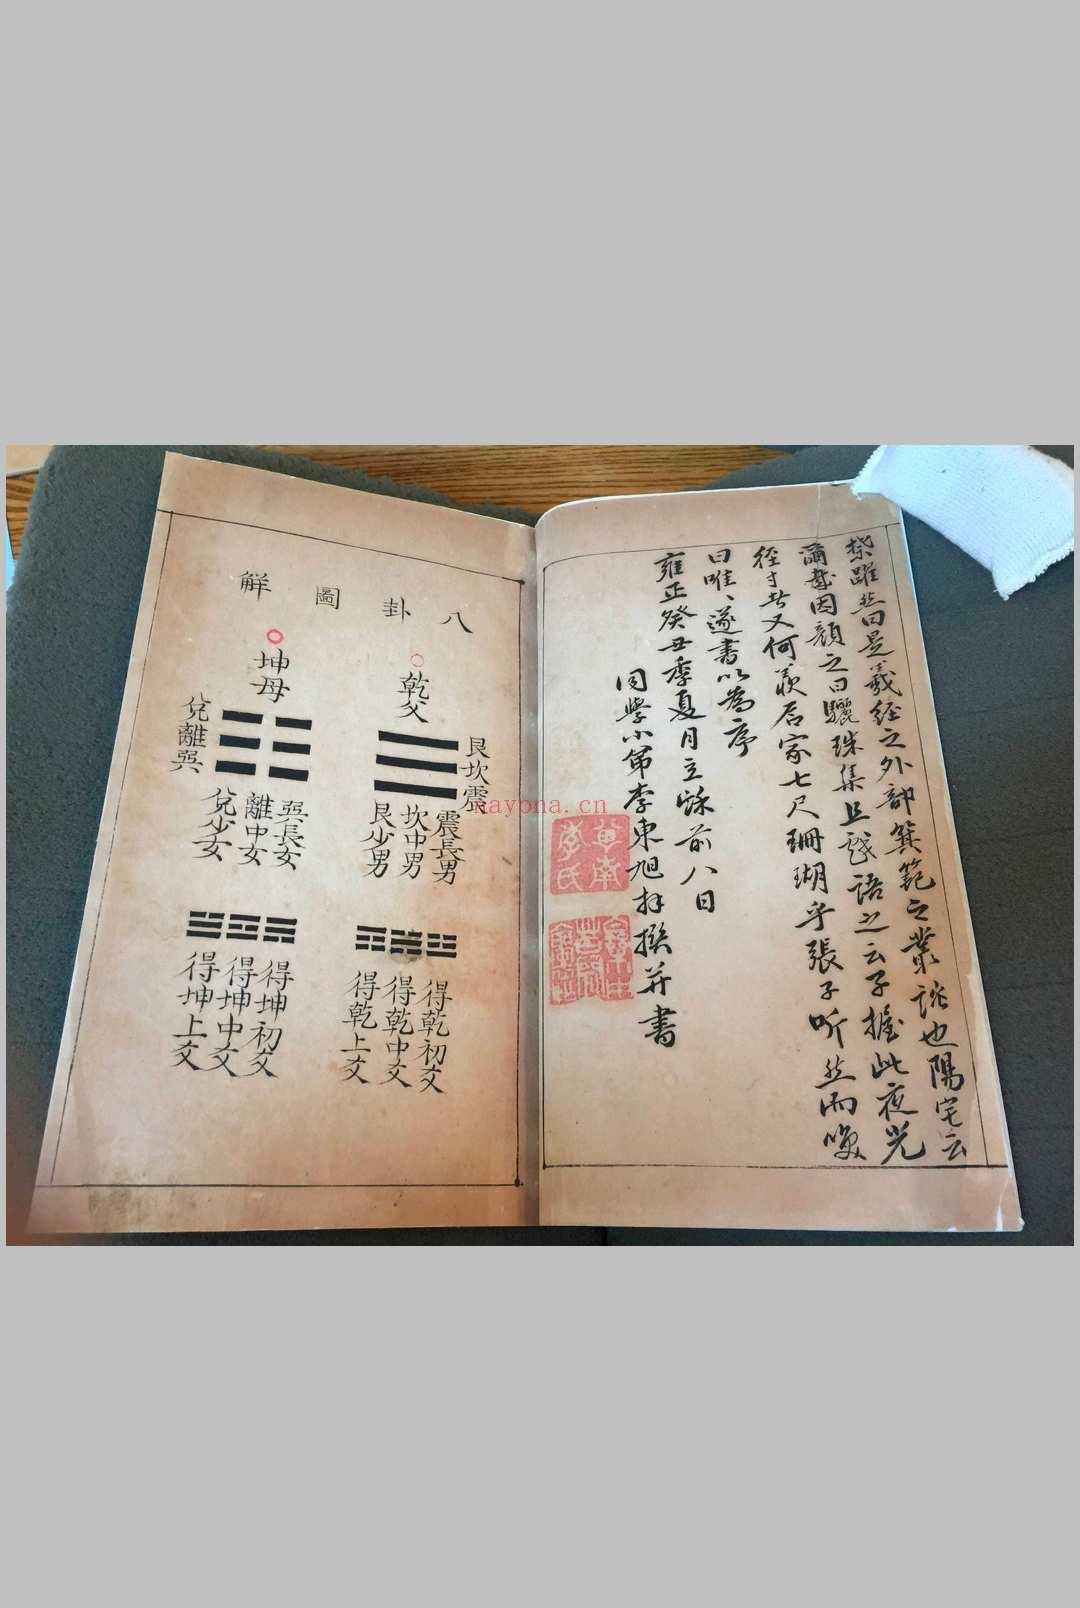 躍然曰是羲經之外部箕範之叢談也陽宅云
爾哉因顏之曰驪珠集且戲語之云子握此夜光
徑寸者又何羨石家七尺珊瑚乎張子听然而喚
曰唯、遂書以為序
雍正癸丑季夏月立秋前八日
同學小弟李東旭拜撰并書
李氏
八卦圖解
乾父
艮坎震
震長男
坎中男
艮少男
得乾初爻
得乾中爻
得乾上爻
坤母
兌離巽
巽長女
離中女
兌少女
得坤初爻
得坤中爻
得坤上爻
nayona.cn